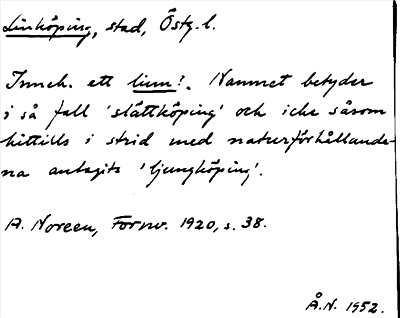 Linköping, stad, Östg. l.
Inneh. ett linn?. Namnet betyder
i så fall 'slättköping' och icke såsom
hittills i strid med naturförhållande-
na antagits 'ljungköping'.
A. Noreen, Fornv. 1920, s. 38.
Å.N. 1952.